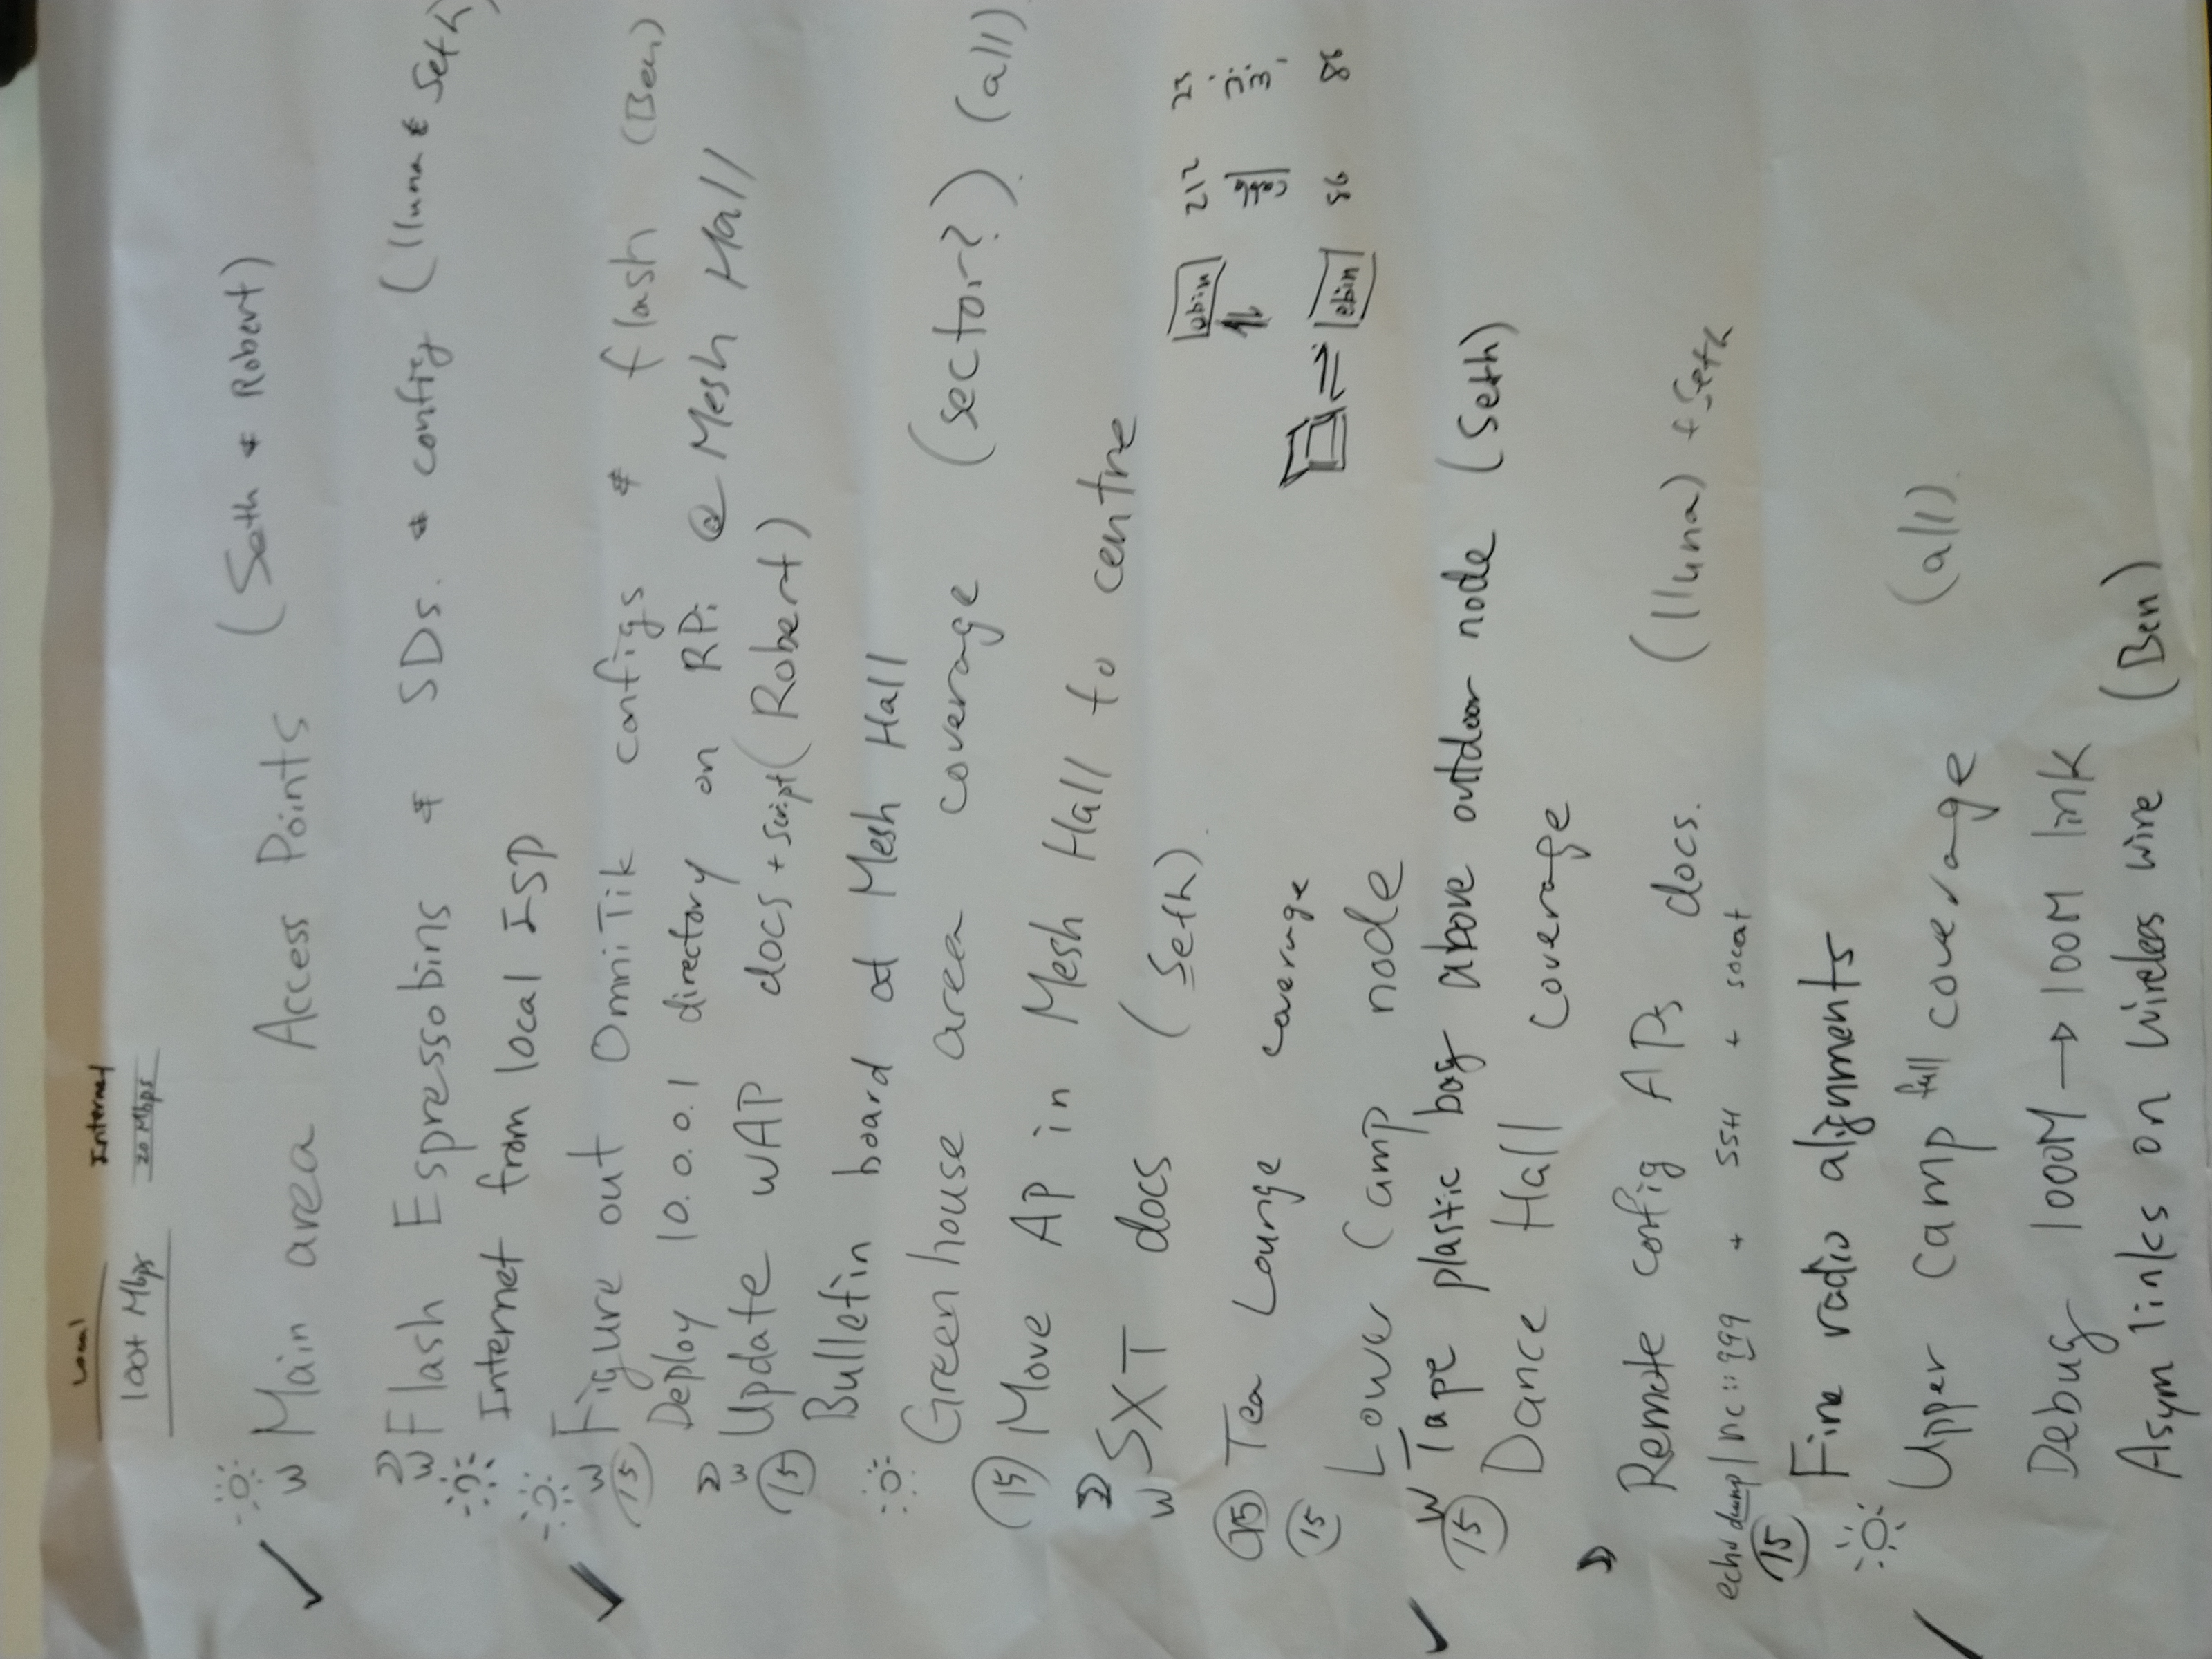 Local Internet
100+ Mbps 20 Mbps
W Main area Access Points (Seth & Robert)
D W Flash Espressobins & SDs. & config (lluna & Seth)
Internet from local ISP
W Figure out OmniTik configs & flash (Ben)
15 Deploy 10.0.0.1 directory on RPi @ Mesh Hall
D W Update WAP docs + script (Robert)
15 Bulletin board at Mesh Hall
Greenhouse area coverage (sector?) (all)
15 Move AP in Mesh Hall to centre
D W SXT docs (Seth)
ebin 212 23
cable
ebin 86 86
15 Tea Lounge coverage
15 Lower Camp node
W Tape plastic bag above outdoor node (Seth)
15 Dance Hall coverage
D Remote config APs docs. (lluna) + Seth
echo dump | nc ::999 + SSH + socat
15 Fine radio alignments
Upper camp full coverage (all)
Debug 1000M → 100M link
Asym links on wireless wire (Ben)